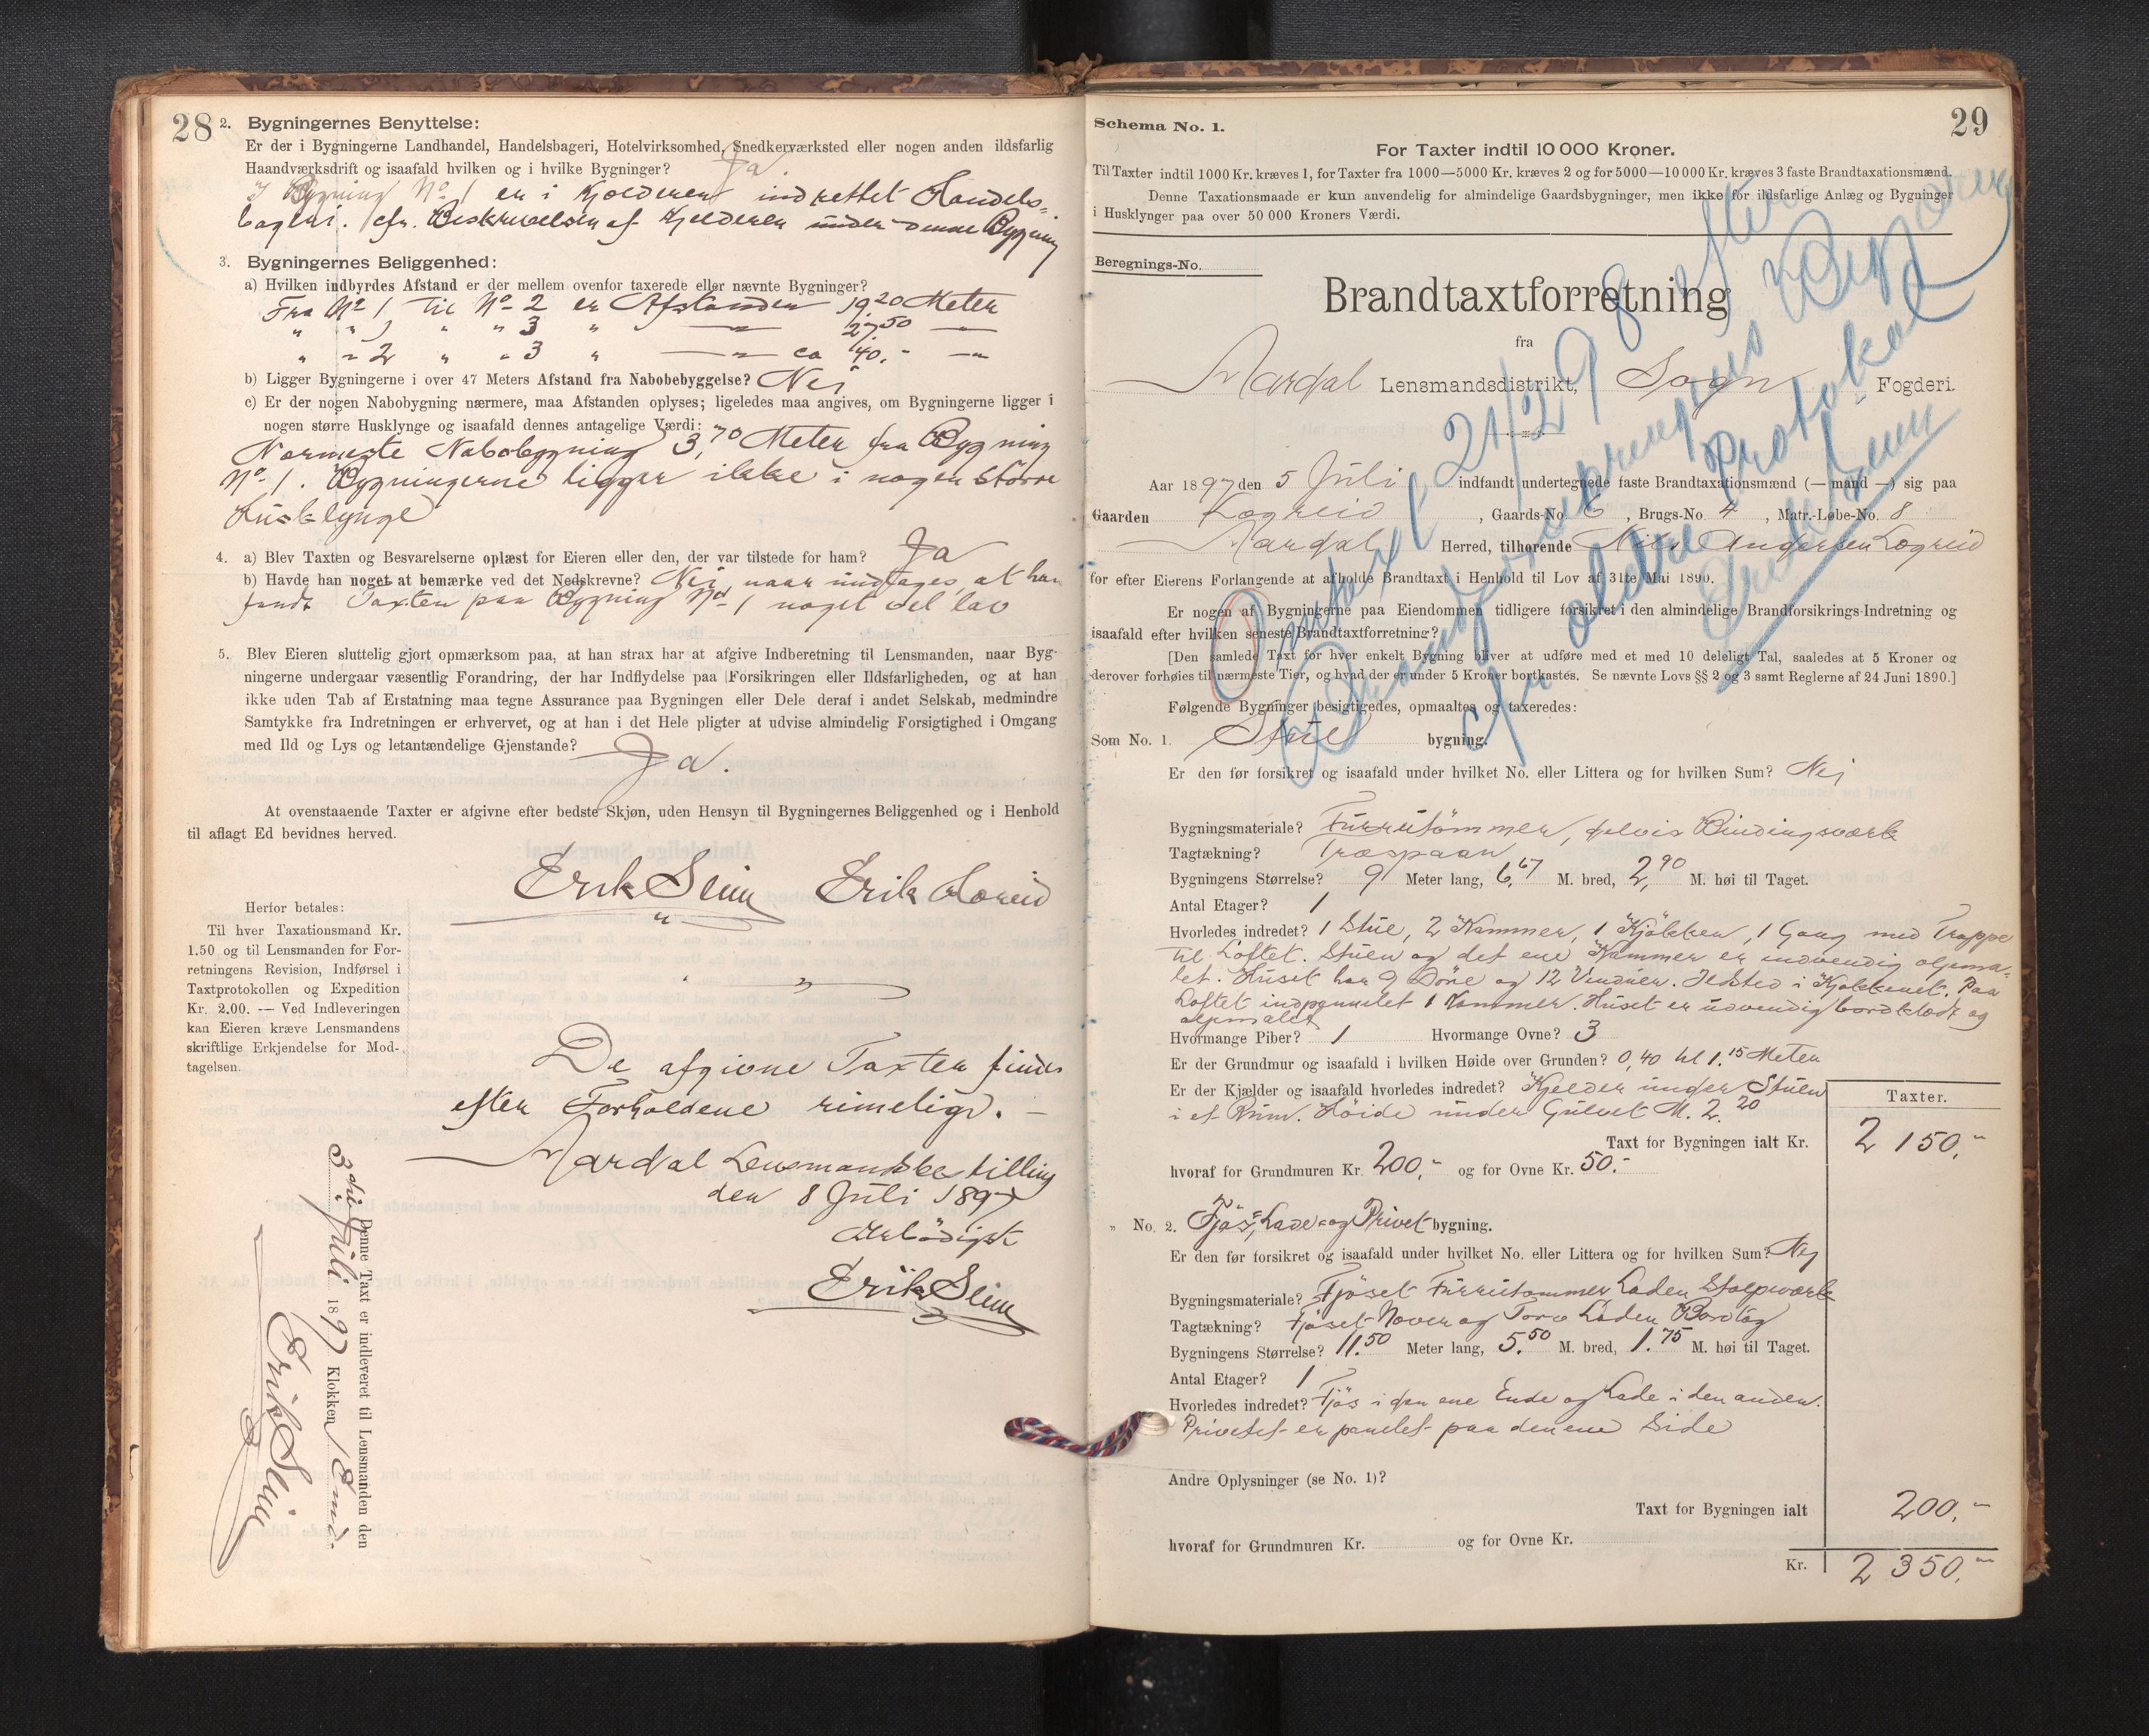 28
2. Bygningernes Benyttelse:
Er der i Bygningerne Landhandel, Handelsbageri, Hotelvirksomhed, Snedkerværksted eller nogen anden ildsfarlig
Haandværksdrift og isaafald hvilken og i hvilke Bygninger? Ja.
I Bygning No. 1 er i Kjelderen indrettet Handels=
bageri. cfr. Beskrivelsen af Kjelderen under denne Bygning
3. Bygningernes Beliggenhed:
a) Hvilken indbyrdes Afstand er der mellem ovenfor taxerede eller nævnte Bygninger?
Fra No 1 til No. 2 er Afstanden 19,20 Meter
" " 1 " " 3 " — " — 27,50 —
" " 2 " " 3 " — " — ca 40.- — "
b) Ligger Bygningerne i over 47 Meters Afstand fra Nabobebyggelse? Nei
c) Er der nogen Nabobygning nærmere, maa Afstanden oplyses; ligeledes maa angives, om Bygningerne ligger i
nogen større Husklynge og isaafald dennes antagelige Værdi:
Nærmeste Nabobygning 3,70 Meter fra Bygning
No. 1. Bygningerne ligger ikke i nogen større
Husklynge
4. a) Blev Taxten og Besvarelserne oplæst for Eieren eller den, der var tilstede for ham? Ja
b) Havde han noget at bemærke ved det Nedskrevne? Nei, naar undtages, at han
fandt Taxten paa Bygning No 1 noget vel lav
5. Blev Eieren sluttelig gjort opmærksom paa, at han strax har at afgive Indberetning til Lensmanden, naar Byg-
ningerne undergaar væsentlig Forandring, der har Indflydelse paa Forsikringen eller Ildsfarligheden, og at han
ikke uden Tab af Erstatning maa tegne Assurance paa Bygningen eller Dele deraf i andet Selskab, medmindre
Samtykke fra Indretningen er erhvervet, og at han i det Hele pligter at udvise almindelig Forsigtighed i Omgang
med Ild og Lys og letantændelige Gjenstande? Ja.
At ovenstaaende Taxter er afgivne efter bedste Skjøn, uden Hensyn til Bygningernes Beliggenhed og i Henhold
til aflagt Ed bevidnes herved.
Erik Seim Erik Loreid
Herfor betales:
Til hver Taxationsmand Kr.
1.50 og til Lensmanden for For-
retningens Revision, Indførsel i
Taxtprotokollen og Expedition
Kr. 2.00. — Ved Indleveringen
kan Eieren kræve Lensmandens
skriftlige Erkjendelse for Mod-
tagelsen.
De afgivne Taxter findes
efter Forholdene rimelige. —
Aardal Lensmandsbestilling
den 8 Juli 1897
Ærbødigst
Erik Seim
Denne Taxt er indleveret til Lensmanden den
8 Juli 1897 Klokken 1 Emd.
Erik Seim
29
Schema No. 1.
For Taxter indtil 10 000 Kroner.
Til Taxter indtil 1000 Kr. kræves 1, for Taxter fra 1000—5000 Kr. kræves 2 og for 5000—10 000 Kr. kræves 3 faste Brandtaxationsmænd.
Denne Taxationsmaade er kun anvendelig for almindelige Gaardsbygninger, men ikke for ildsfarlige Anlæg og Bygninger
i Husklynger paa over 50 000 Kroners Værdi.
Beregnings-No.
Brandtaxtforretning
fra
Aardal Lensmandsdistrikt, Sogn Fogderi.
Aar 1897 den 5 Juli indfandt undertegnede faste Brandtaxationsmænd (— mand —) sig paa
Gaarden Lægreid, Gaards-No. 6, Brugs-No. 4, Matr.-Løbe-No. 8
Aardal Herred, tilhørende Nils Andersen Lægreid
for efter Eierens Forlangende at afholde Brandtaxt i Henhold til Lov af 31te Mai 1890.
Er nogen af Bygningerne paa Eiendommen tidligere forsikret i den almindelige Brandforsikrings-Indretning og
isaafald efter hvilken seneste Brandtaxtforretning?
[Den samlede Taxt for hver enkelt Bygning bliver at udføre med et med 10 deleligt Tal, saaledes at 5 Kroner og
derover forhøies til nærmeste Tier, og hvad der er under 5 Kroner bortkastes. Se nævnte Lovs §§ 2 og 3 samt Reglerne af 24 Juni 1890.]
Følgende Bygninger besigtigedes, opmaaltes og taxeredes:
Omtaxert 21/2 98 efter
cfr ældre Protokol
Erik Seim
Som No. 1. Stue bygning.
Er den før forsikret og isaafald under hvilket No. eller Littera og for hvilken Sum? Nei
Bygningsmateriale? Furutømmer, delvis Bindingsværk
Tagtækning? Træspaan
Bygningens Størrelse? 9 Meter lang, 6,67 M. bred, 2,90 M. høi til Taget.
Antal Etager? 1
Hvorledes indredet? 1 Stue, 2 Kammer, 1 Kjøkken, 1 Gang med Trappe
til Loftet. Stuen og det ene Kammer er indvendig oljema=
let. Huset har 9 Døre og 12 Vinduer. Ildsted i Kjøkkenet. Paa
Loftet indpanelet 1 Kammer. Huset er udvendig bordklædt og
oljemalet
Hvormange Piber? 1 Hvormange Ovne? 3
Er der Grundmur og isaafald i hvilken Høide over Grunden? 0,40 til 1.15 Meter
Er der Kjælder og isaafald hvorledes indredet? Kjelder under Stuen
i et Rum. Høide under Gulvet M. 2,20
Taxter.
Taxt for Bygningen ialt Kr. 2 150.-
hvoraf for Grundmuren Kr. 200.- og for Ovne Kr. 50.-
" No. 2. Fjøs=, Lade= og Privet bygning.
Er den før forsikret og isaafald under hvilket No. eller Littera og for hvilken Sum? Nej
Bygningsmateriale? Fjøset Furutømmer Laden Stolpværk
Tagtækning? Fjøset Never og Torv Laden Bordtag
Bygningens Størrelse? 11.50 Meter lang, 5.50 M. bred, 1.75 M. høi til Taget.
Antal Etager? 1
Hvorledes indredet? Fjøs i den ene Ende og Lade i den anden.
Privetet er panelet paa den ene Side
Andre Oplysninger (se No. 1)?
Taxt for Bygningen ialt 200.-
hvoraf for Grundmuren Kr. og for Ovne Kr.
Kr. 2 350.-